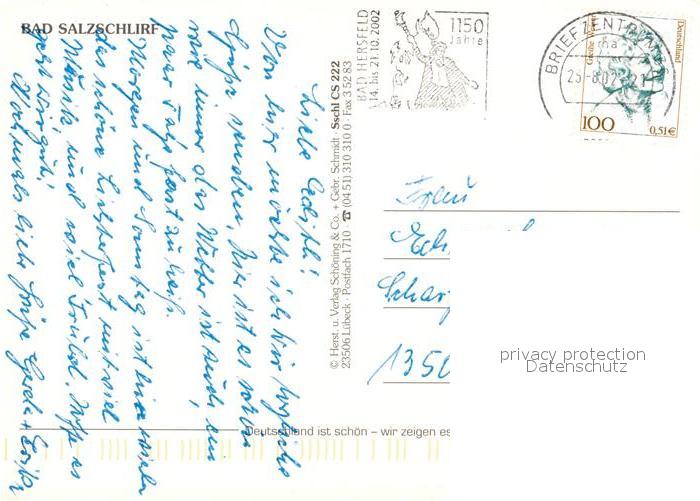 BAD SALZSCHLIRF
Liebe Edith!
Von hier möchte ich Dir herzliche
Grüße senden. Hier ist es schön
wie immer das Wetter ist auch, ein
paar Tage fast zu heiß.
Morgen und Sonntag ist hier wieder
das schöne Lichterfest mit viel
Musik und viel Trubel. Hoffe es
geht Dir gut.
Nochmals liebe Grüße Gerda +
© Herst. u. Verlag Schöning & Co. + Gebr. Schmidt · Sschl CS 222
23506 Lübeck · Postfach 1710 · ☎ (04 51) 310 310 0 · Fax 3 52 83
BAD HERSFELD
14. bis 21.10.2002
1150
Jahre
BRIEFZENTRUM
25-8.02-21
Deutschland
100
0,51€
Frau
1350
privacy protection
Datenschutz
Deutschland ist schön – wir zeigen es